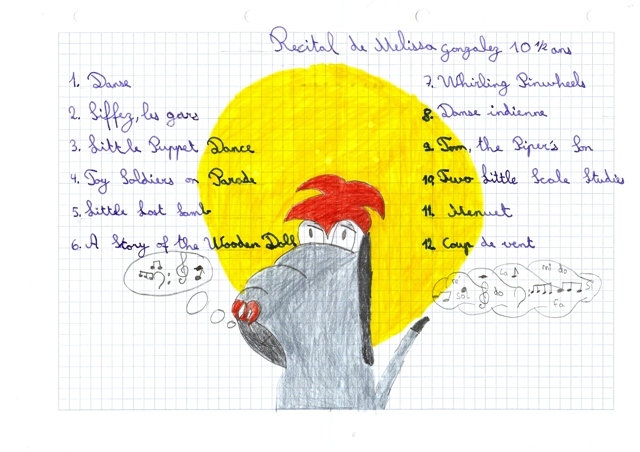 Recital de Melissa gonzalez 10 1/2 ans
1. Danse
2. Siffez, les gars
3. Little Puppet Dance
4. Toy Soldiers on Parade
5. Little Lost Lamb
6. A Story of the Wooden Doll
7. Whirling Pinwheels
8. Danse indienne
9. Tom, the Piper's Son
10. Two Little Scale Studies
11. Menuet
12. Coup de vent
ré sol do la mi do fa si